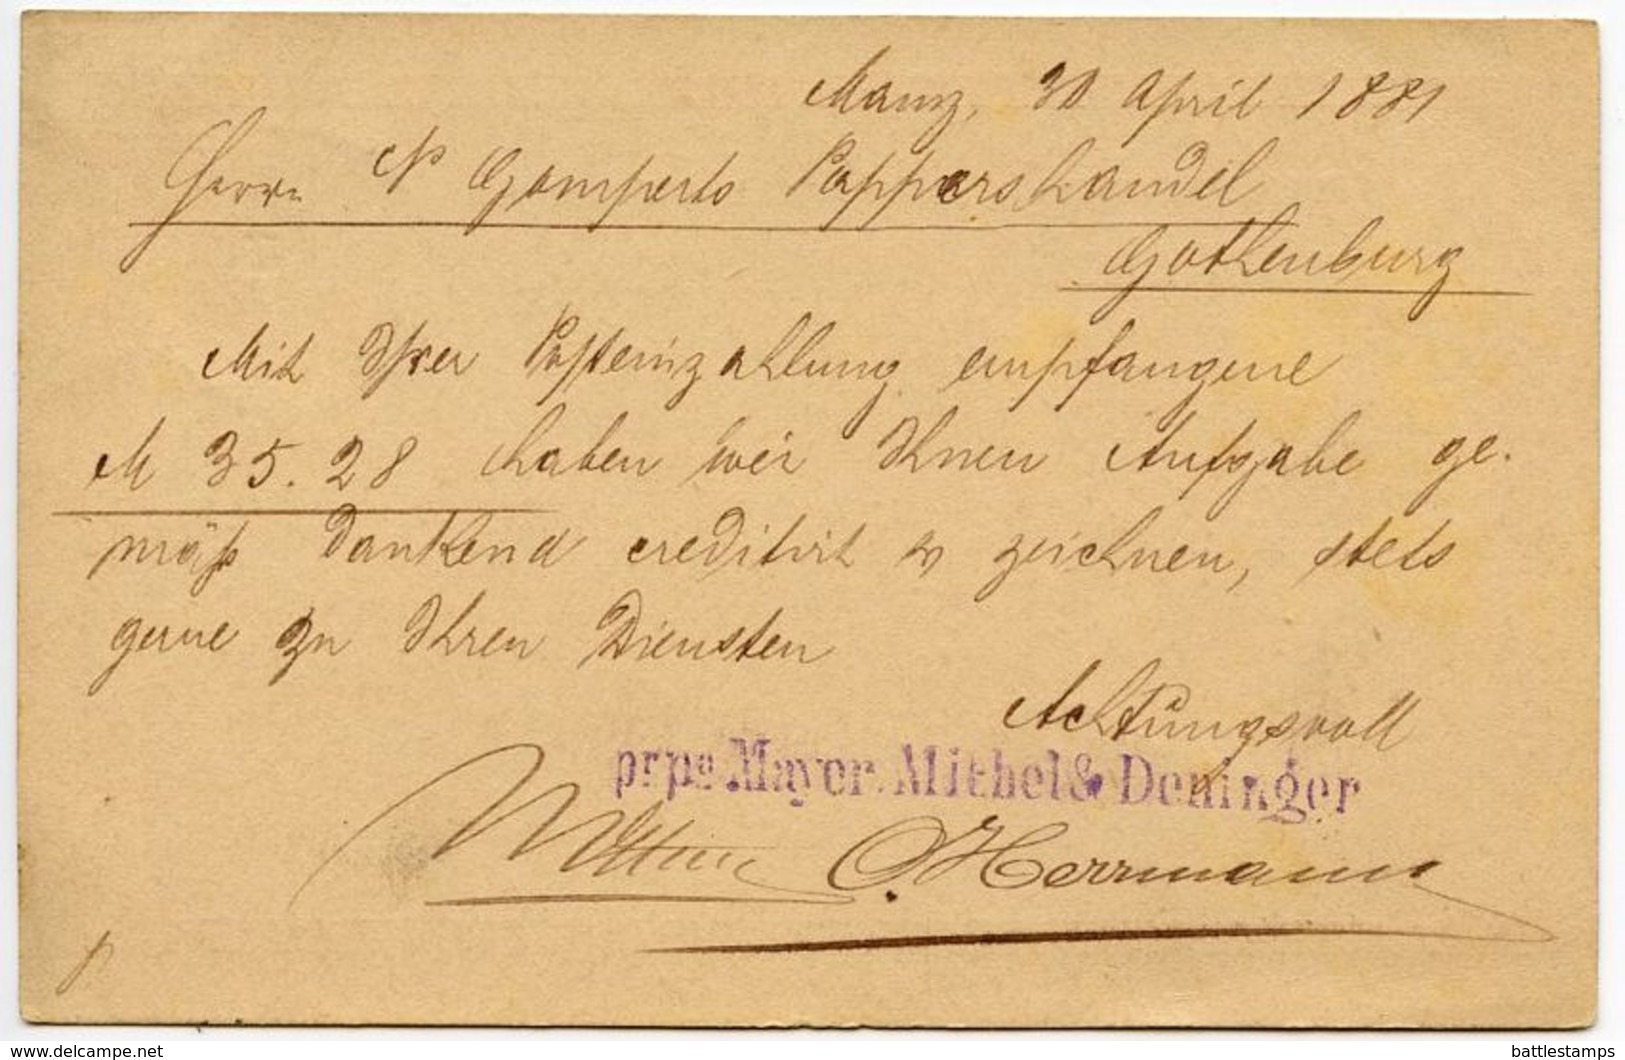 Mainz, 30 April 1881
Herrn N Gomperts Pappershandel
Gothenburg
Mit Ihrer Posteinzahlung empfangene
M 35.28 haben wir Ihnen Aufgabe ge-
mäß dankend creditirt & zeichnen, stets
gerne zu Ihren Diensten
Achtungsvoll
prpa Mayer. Mithel & Deninger
O. Herrmann
delcampe.net battlestamps